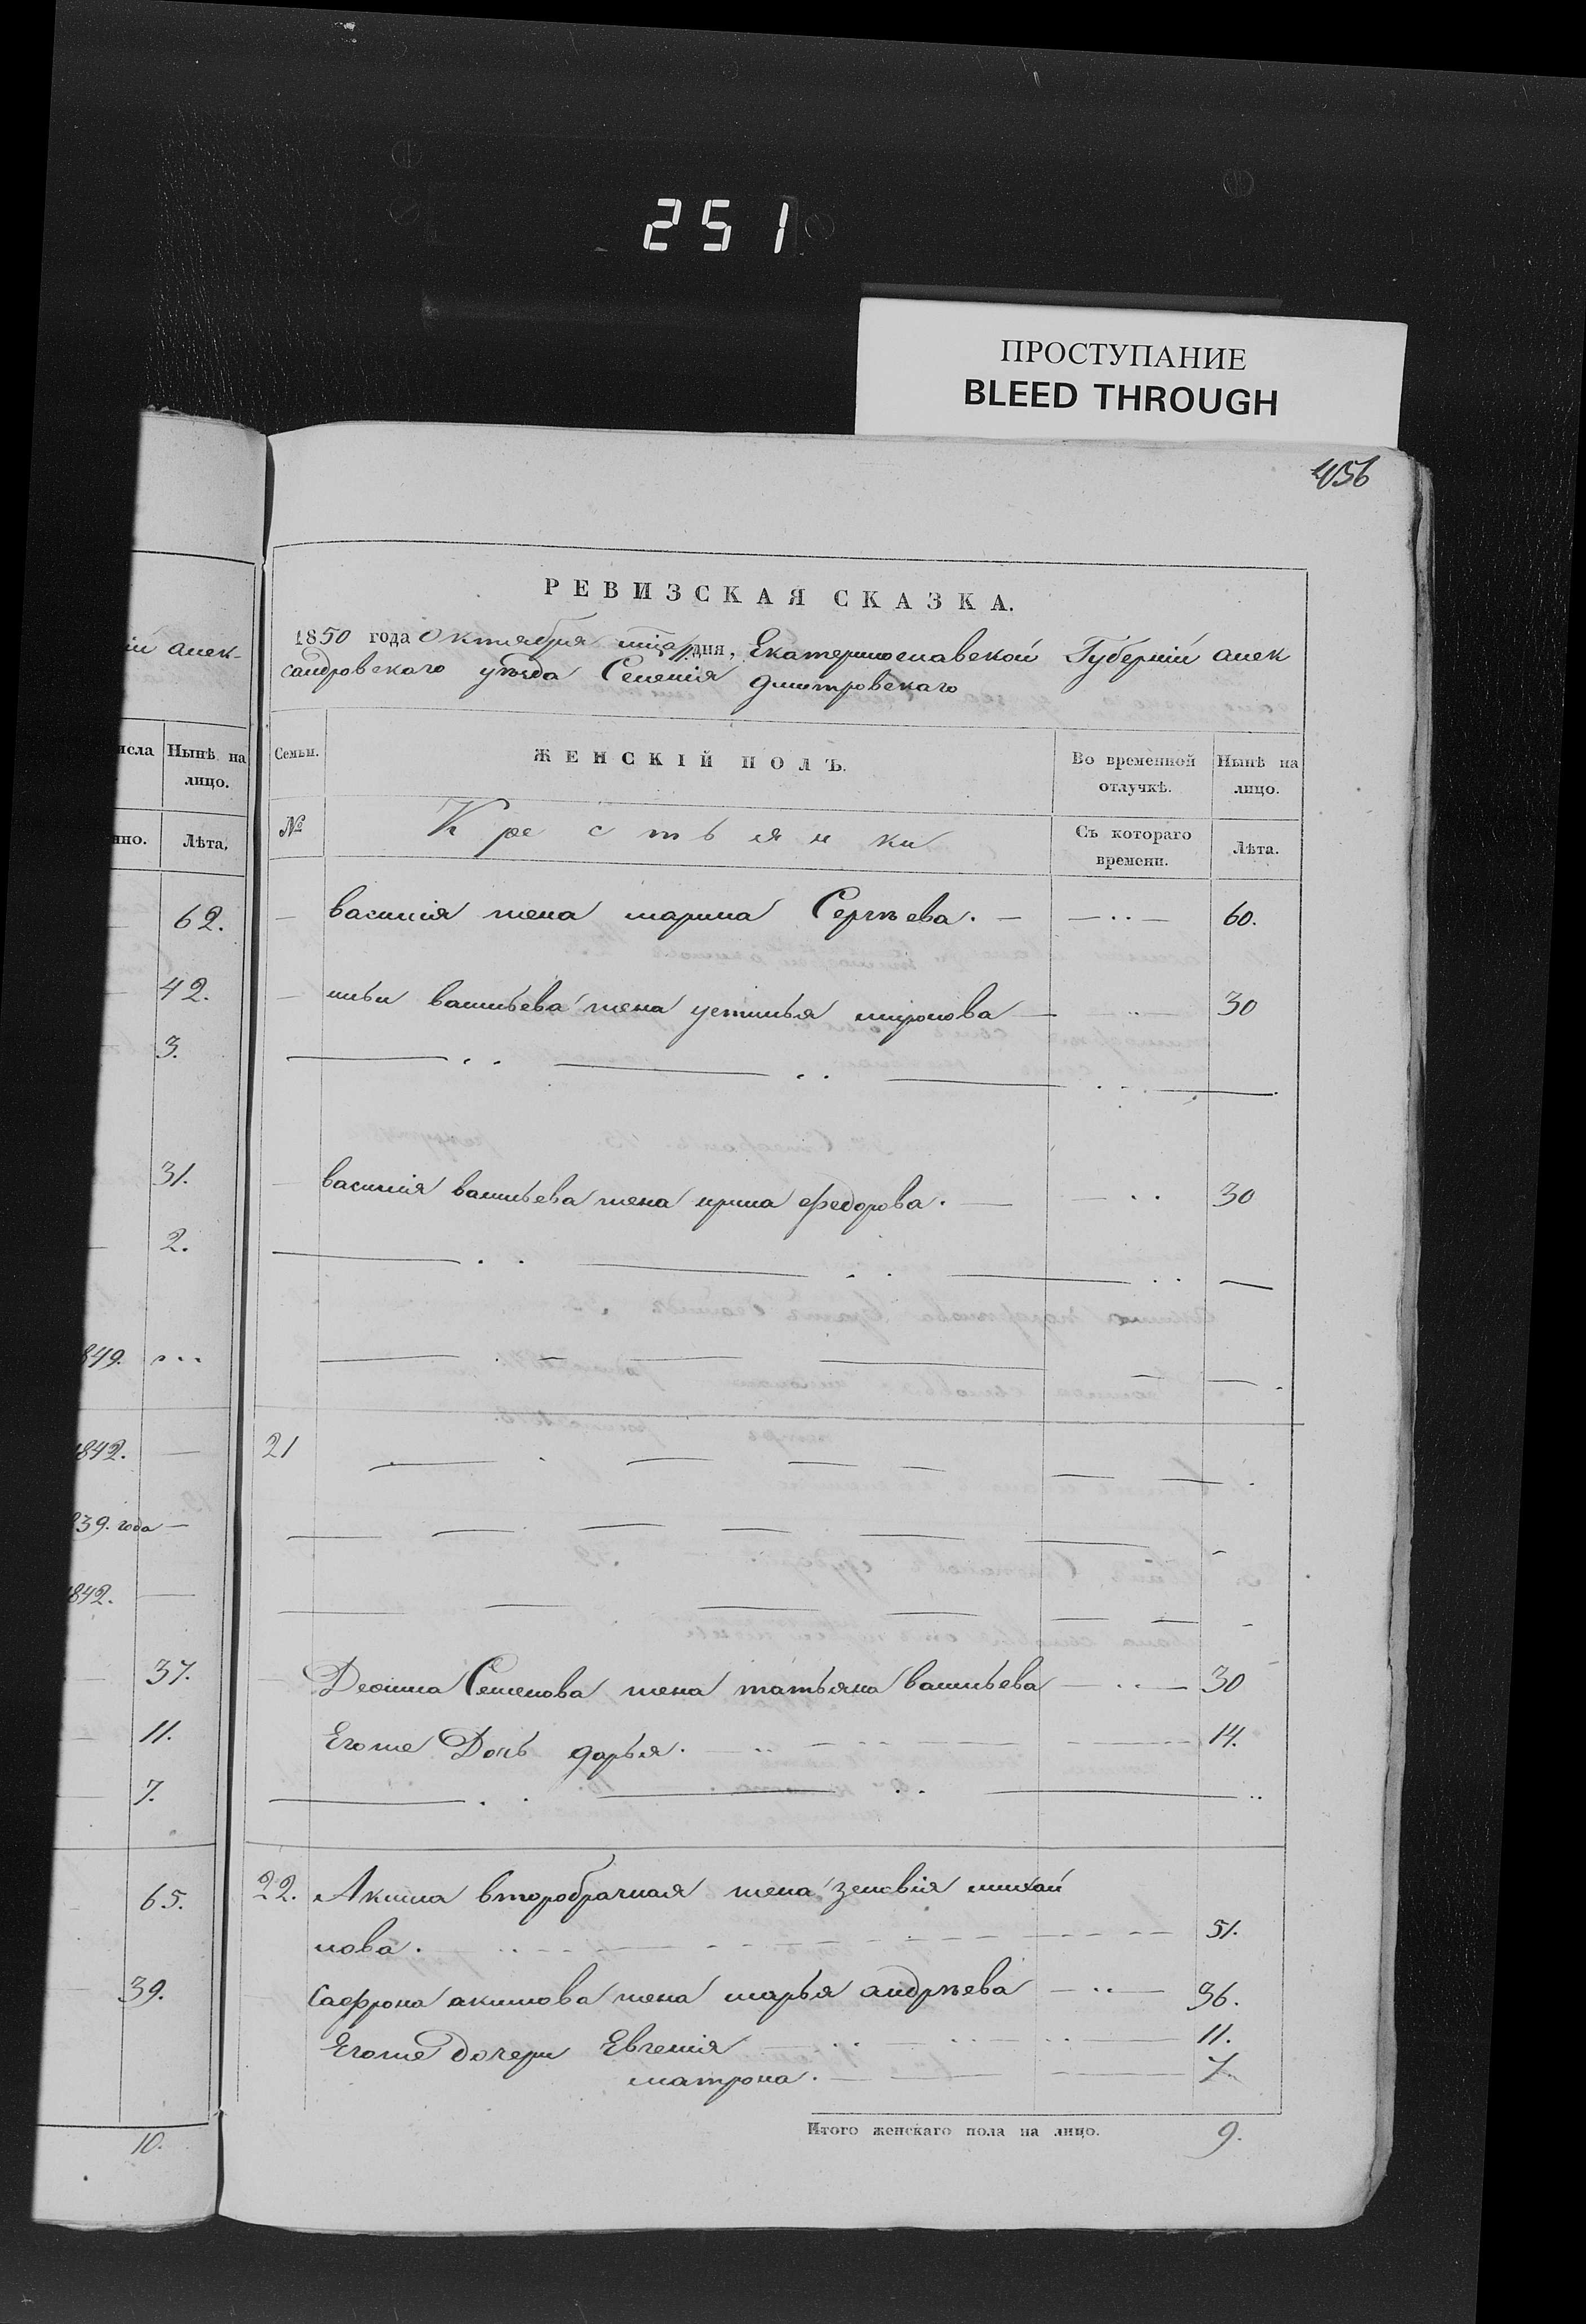 251
ПРОСТУПАНИЕ
BLEED THROUGH
456
ій алек-
исла
Нынѣ на
лицо.
нно.
Лѣта.
62.
42.
3.
31.
2.
849.
1842.
839. года
1842.
37.
11.
7.
65.
39.
10.
РЕВИЗСКАЯ СКАЗКА.
1850 года Октября дня, Екатеринославской Губерніи алек
сандровскаго уѣзда Селенія дмитровскаго
Семьи.
ЖЕНСКІЙ ПОЛЪ.
Во временной
отлучкѣ.
Нынѣ на
лицо.
№
Крестьянки
Съ котораго
времени.
Лѣта.
василія жена марина Сергѣева. 60.
ильи васильева жена устинья миронова 30
василія васильева жена ирина федорова. 30
21
Деомида Семенова жена татьяна васильева 30
Егоже Дочь дарья. 14.
22. Акима второбрачная жена зеновія михай
лова. 51.
сафрона акимова жена марья андрѣева 36.
Егоже дочери Евгенія 11.
матрона. 7.
Итого женскаго пола на лицо. 9.